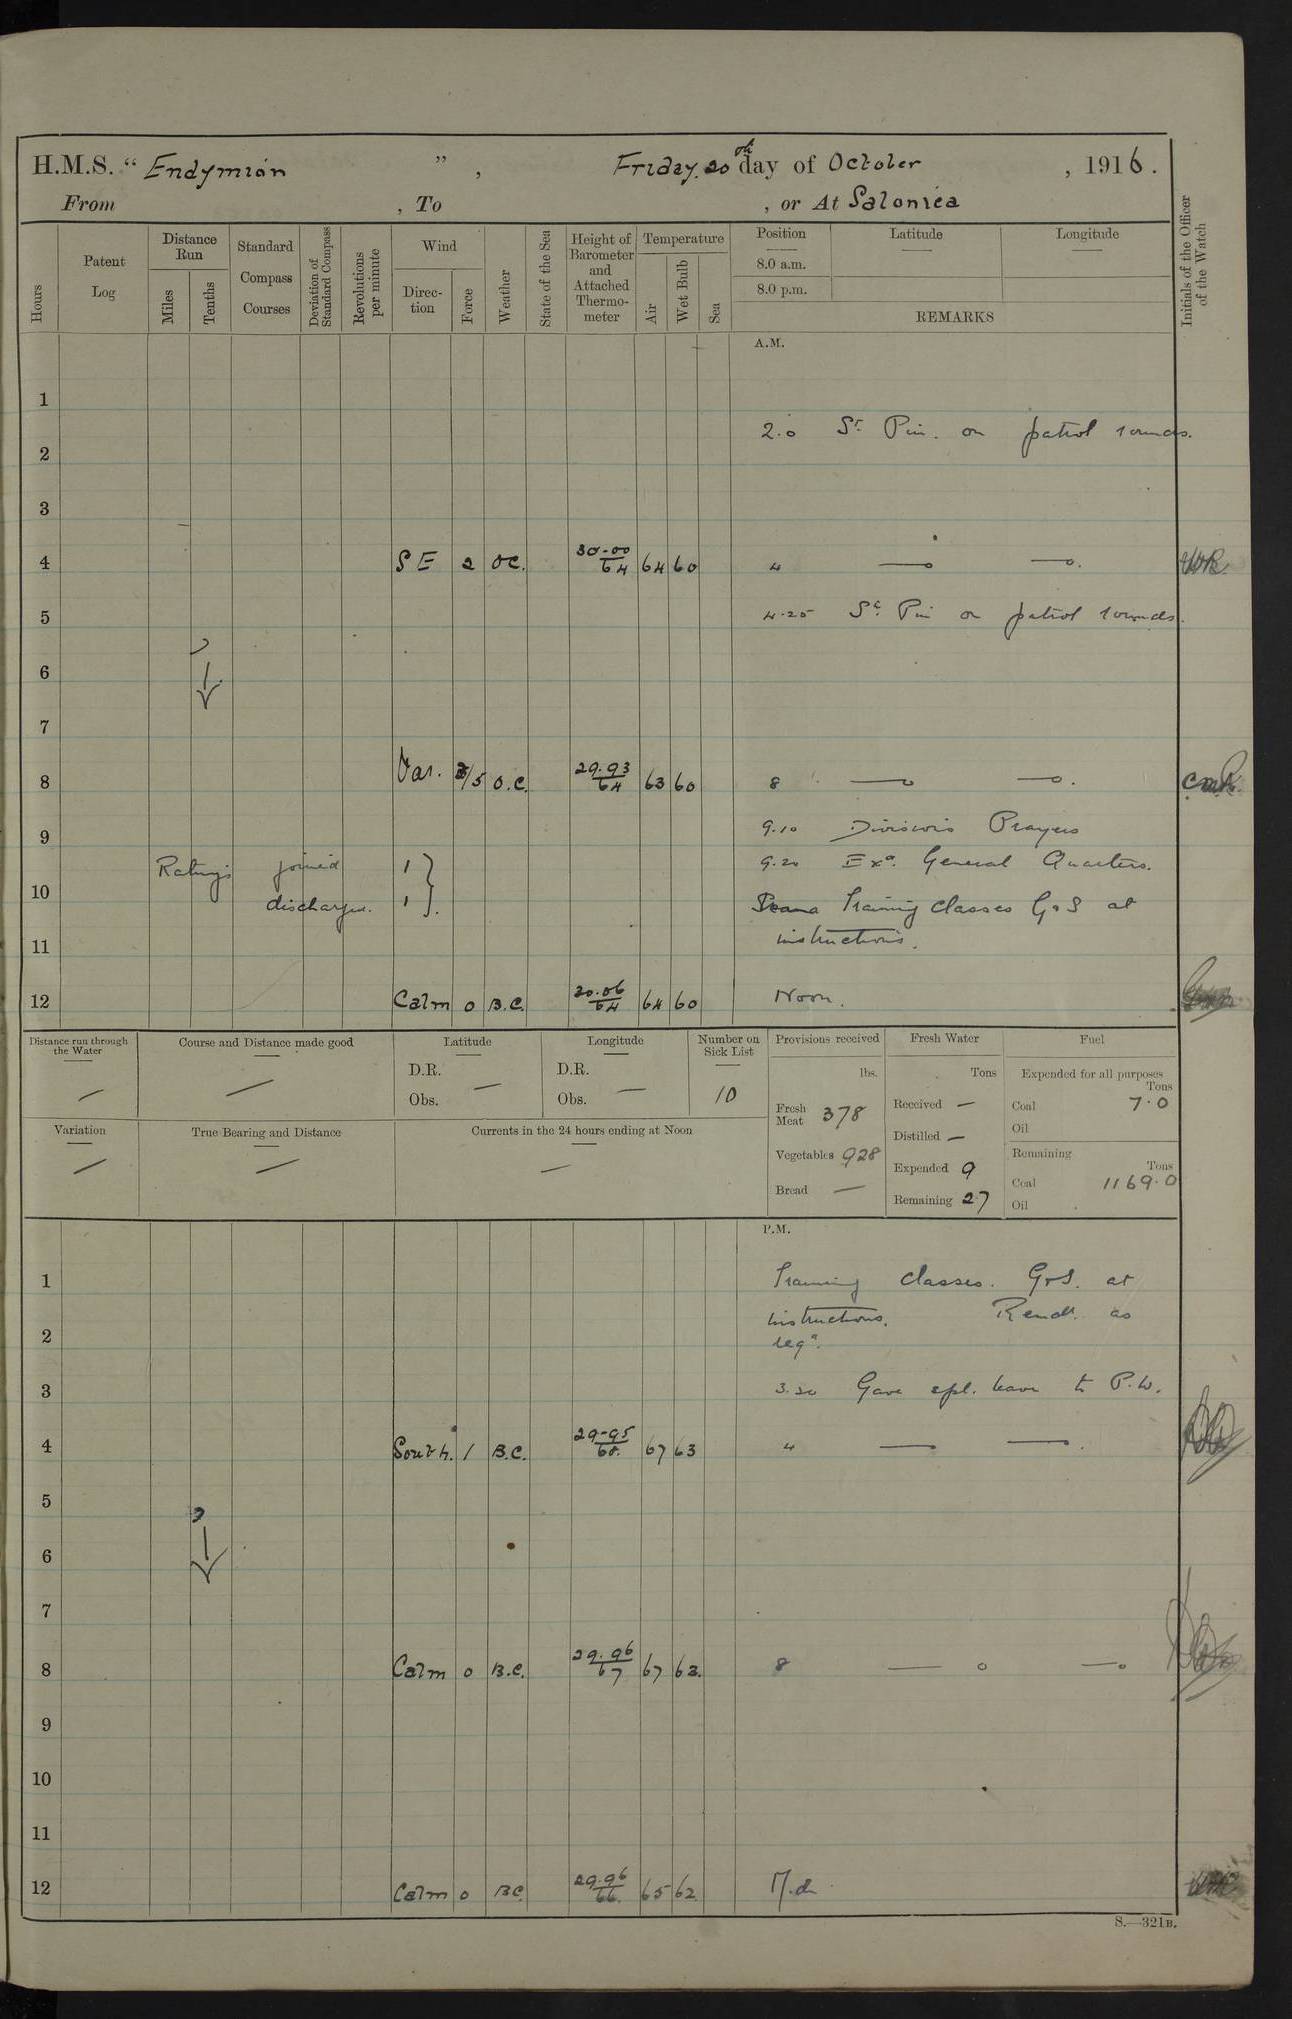 H.M.S. “ Endymion ” , Friday. 20th day of October , 1916 .
From , To , or At Salonica
Hours
Patent Log
Distance Run
Miles
Tenths
Standard Compass Courses
Deviation of Standard Compass
Revolutions per minute
Wind
Direction
Force
Weather
State of the Sea
Height of Barometer and Attached Thermometer
Temperature
Air
Wet Bulb
Sea
Position
8.0 a.m.
8.0 p.m.
Latitude
Longitude
REMARKS
Initials of the Officer of the Watch
A.M.
1
2.0 on patrol rounds.
2
3
4 SE 2 OC. 30.00 64 64 60 4
4.25 on patrol rounds.
5
6
7
8 Var. /5 O.C. 29.93 64 63 60 8
9
9.10 Divisions Prayers
Ratings joined 1 9.20 Exd. General Quarters.
10
discharged. 1 Training classes G&S at
11
instructions.
12 Calm 0 B.C. 30.06 64 64 60 Noon.
Distance run through the Water
Course and Distance made good
Latitude
D.R. —
Obs.
Longitude
D.R. —
Obs.
Number on Sick List
10
Provisions received
lbs.
Fresh Meat 378
Vegetables 928
Bread —
Fresh Water
Tons
Received —
Distilled —
Expended 9
Remaining 27
Fuel
Expended for all purposes
Tons
Coal 7.0
Oil
Remaining
Tons
Coal 1169.0
Oil
Variation
True Bearing and Distance
Currents in the 24 hours ending at Noon
P.M.
1 Training classes. G&S. at
instructions. as
2
reqd.
3 3.30 Gave spl. leave to P.W.
4 South. 1 B.C. 29.95 68. 67 63 4
5
6
7
8 Calm 0 B.C. 29.96 67 67 63. 8
9
10
11
12 Calm 0 BC 29.96 66. 65 62 M.d.
S.—321B.